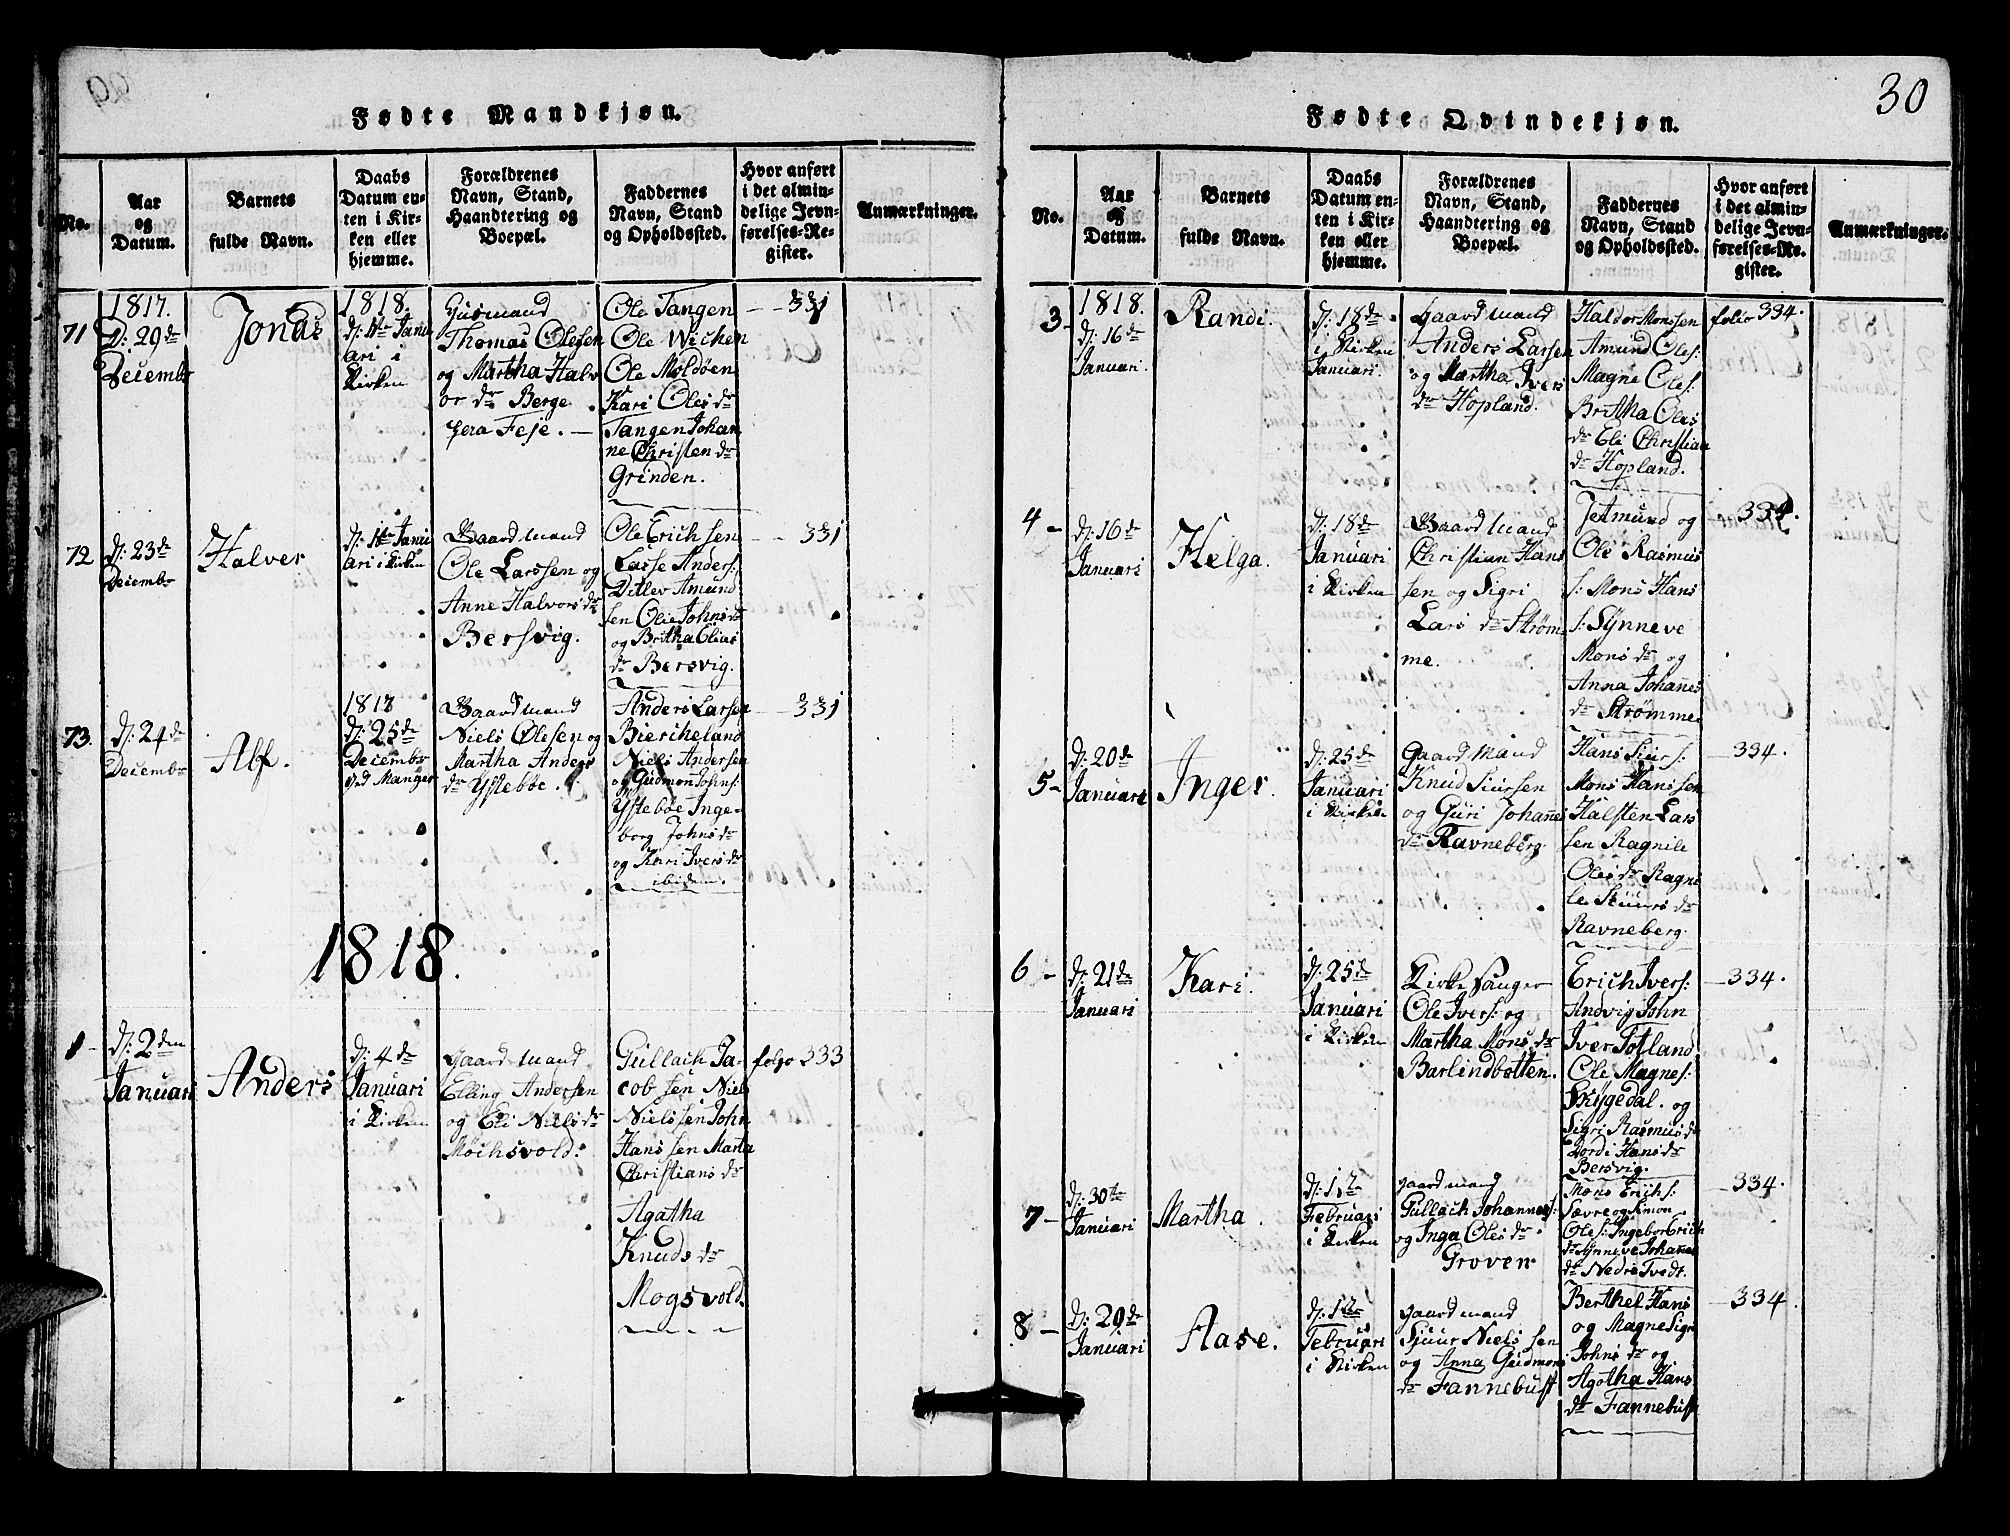 30
Fødte Mandkjøn.
No.
Aar
og
Datum.
Barnets
fulde Navn.
Daabs
Datum en-
ten i Kir-
ken eller
hjemme.
Forældrenes
Navn, Stand,
Haandtering og
Boepæl.
Faddernes
Navn, Stand
og Opholdssted.
Hvor anført
i det almin-
delige Jevn-
førelses-Re-
gister.
Anmærkninger.
71
1817.
D: 29de
Decembr
Jonas
1818.
D: 1te Janu
ari i
Kirken
Huusmand
Thomas Olesen
og Martha Halv
or dr Berge
fra Feje. —
Ole Tangen
Ole Wichen
Ole Moldøen
Kari Ole's dr
Tangen Johan
ne Christen dr
Grinden.
331
72
D: 23de
Decembr
Halver
D: 1te Janu
ari i Kirken
Gaardmand
Ole Larssen og
Anne Halvors dr
Bersvig.
Ole Erichsen
Lasse Anders:
Ditlev Amund
sen Olie Johns dr
og Britha Elias
dr Bersvig.
331
73.
D: 24de
Decembr
Alf.
1817
D: 25de
Decembr
ved Manger
Gaardmand
Niels Olesen og
Martha Anders
dr Ystebøe.
Anders Larsen
Biercheland
Niels Andersen
og Gudmon Johns:
Ystebøe Inge-
borg Johns dr
og Kari Ivers dr
ibidem.
331
1818.
1 -
D: 2den
Januari
Anders
D: 4de
Januari
i Kirken
Gaardmand
Elling Andersen
og Eli Niels dr
Møchsvold.
Gullach Ja-
cobsen Niels
Nielssen John
Hanssen Marta
Christians dr
Agatha
Knuds dr
Mogsvold.
folgo 333
Fødte Qvindekjøn.
No.
Aar
og
Datum.
Barnets
fulde Navn.
Daabs
Datum en-
ten i Kir-
ken eller
hjemme.
Forældrenes
Navn, Stand,
Haandtering og
Boepæl.
Faddernes
Navn, Stand
og Opholdssted.
Hvor anført
i det almin-
delige Jevn-
førelses-Re-
gister.
Anmærkninger.
3 -
1818.
D: 16de
Januari.
Randi.
D: 18de
i Kirken
Januari.
Gaardmand
Anders Larsen
og Martha Ivers
dr Hopland.
Haldor Monssen
Amund Oles:
Magne Oles:
Britha Oles
dr Eli Christian
dr Hopland.
folio 334.
4 -
D: 16de
Januari
Helga.
D: 18de
Januari
i Kirken
Gaardmand
Christian Hans
sen og Sigri
Lars dr Strøm-
me.
Jetmund og
Ole Rasmus
s: Mons Hans
s: Synneve
Mons dr og
Anna Johanes
dr Strømme
334.
5 -
D: 20de
Januari
Inger.
D: 25de
Januari
i Kirken
Gaardmand
Knud Siursen
og Guri Johanes
dr Ravneberg.
Hans Siurs:
Mons Hanssen
Halsten Lars
sen Ragnile
Oles dr Ragni
le Siurs dr
Ravneberg.
334.
6 -
D: 21de
Januari
Kari.
D: 25de
Januari
i Kirken
Kirkesanger
Ole Ivers: og
Martha Mons dr
Barlindbotten.
Erich Ivers:
Andvig John
Iver Totland
Ole Magnes:
Skygedal. og
Sigri Rasmus dr
Dordi Hans dr
Bersvig.
334.
7 -
D: 30te
Januari
Martha.
D: 1te
Februari
i Kirken
gaardmand
Gullach Johannes:
og Inga Oles dr
Groven
Mons Erichs:
Sævre og Simon
Oles: Ingebor Erich
dr Synneve Johanes
dr Nedre Tvedt.
334.
8 -
D: 29de
Januari
Aase.
D: 1te
Februari
i Kirken
gaardmand
Sjuur Nielssen
og Anna Gudmons
dr Fannebust
Berthel Hans
og Magne Sigri
Johns dr og
Agatha Hans
dr Fannebust
334.